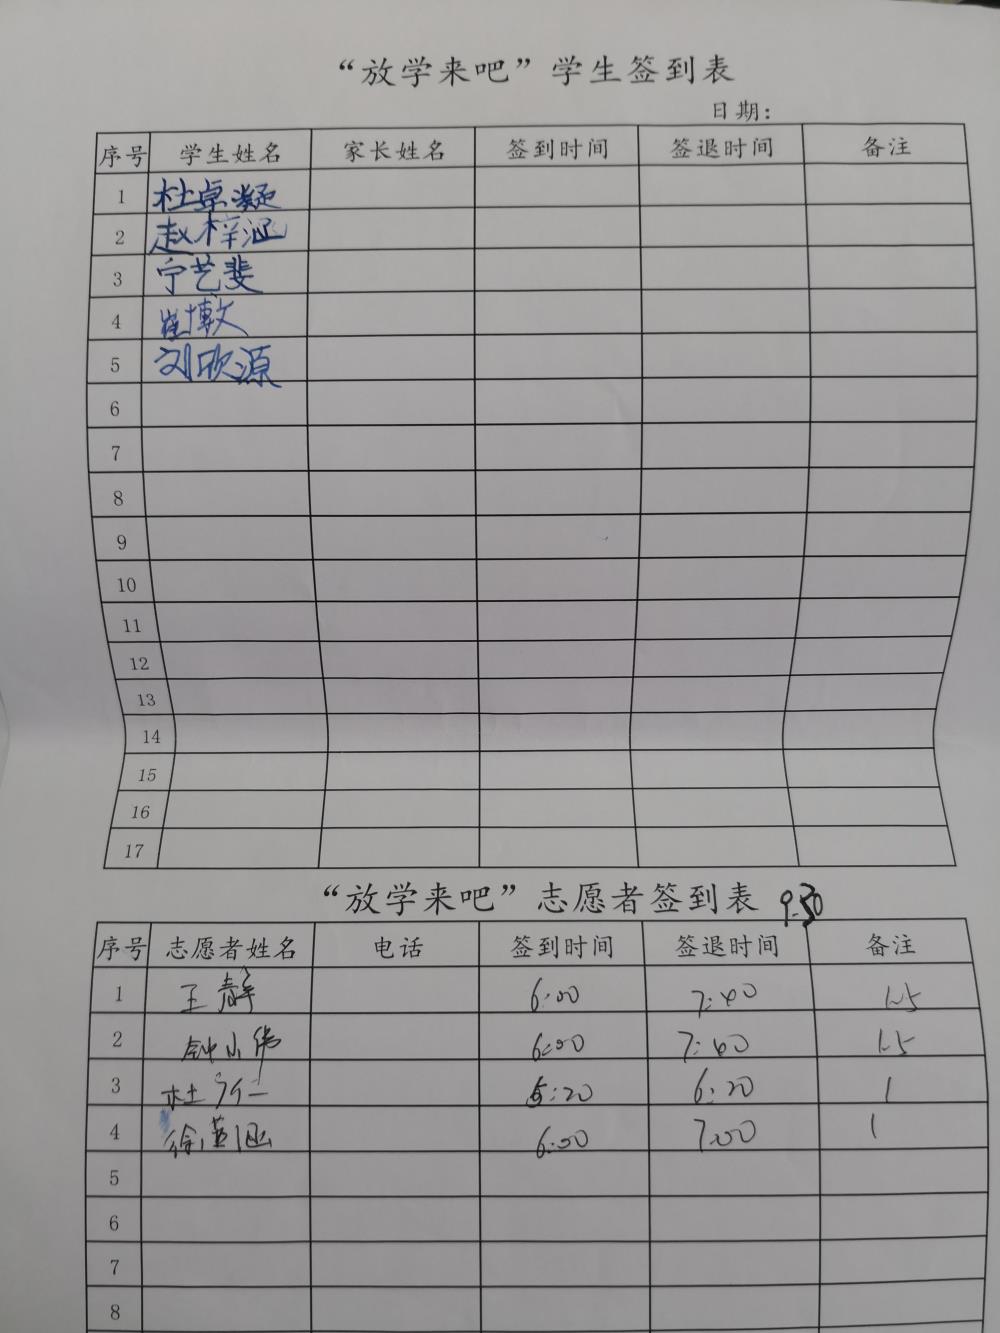 “放学来吧”学生签到表
日期：
序号 学生姓名 家长姓名 签到时间 签退时间 备注
1 杜卓凝
2 赵梓涵
3 宁艺斐
4 崔博文
5 刘欣源
6
7
8
9
10
11
12
13
14
15
16
17
“放学来吧”志愿者签到表 9.30
序号 志愿者姓名 电话 签到时间 签退时间 备注
1 王静 6:00 7:40 1.5
2 钟小伟 6:00 7:40 1.5
3 杜 5:20 6:20 1
4 徐 涵 6:00 7:00 1
5
6
7
8